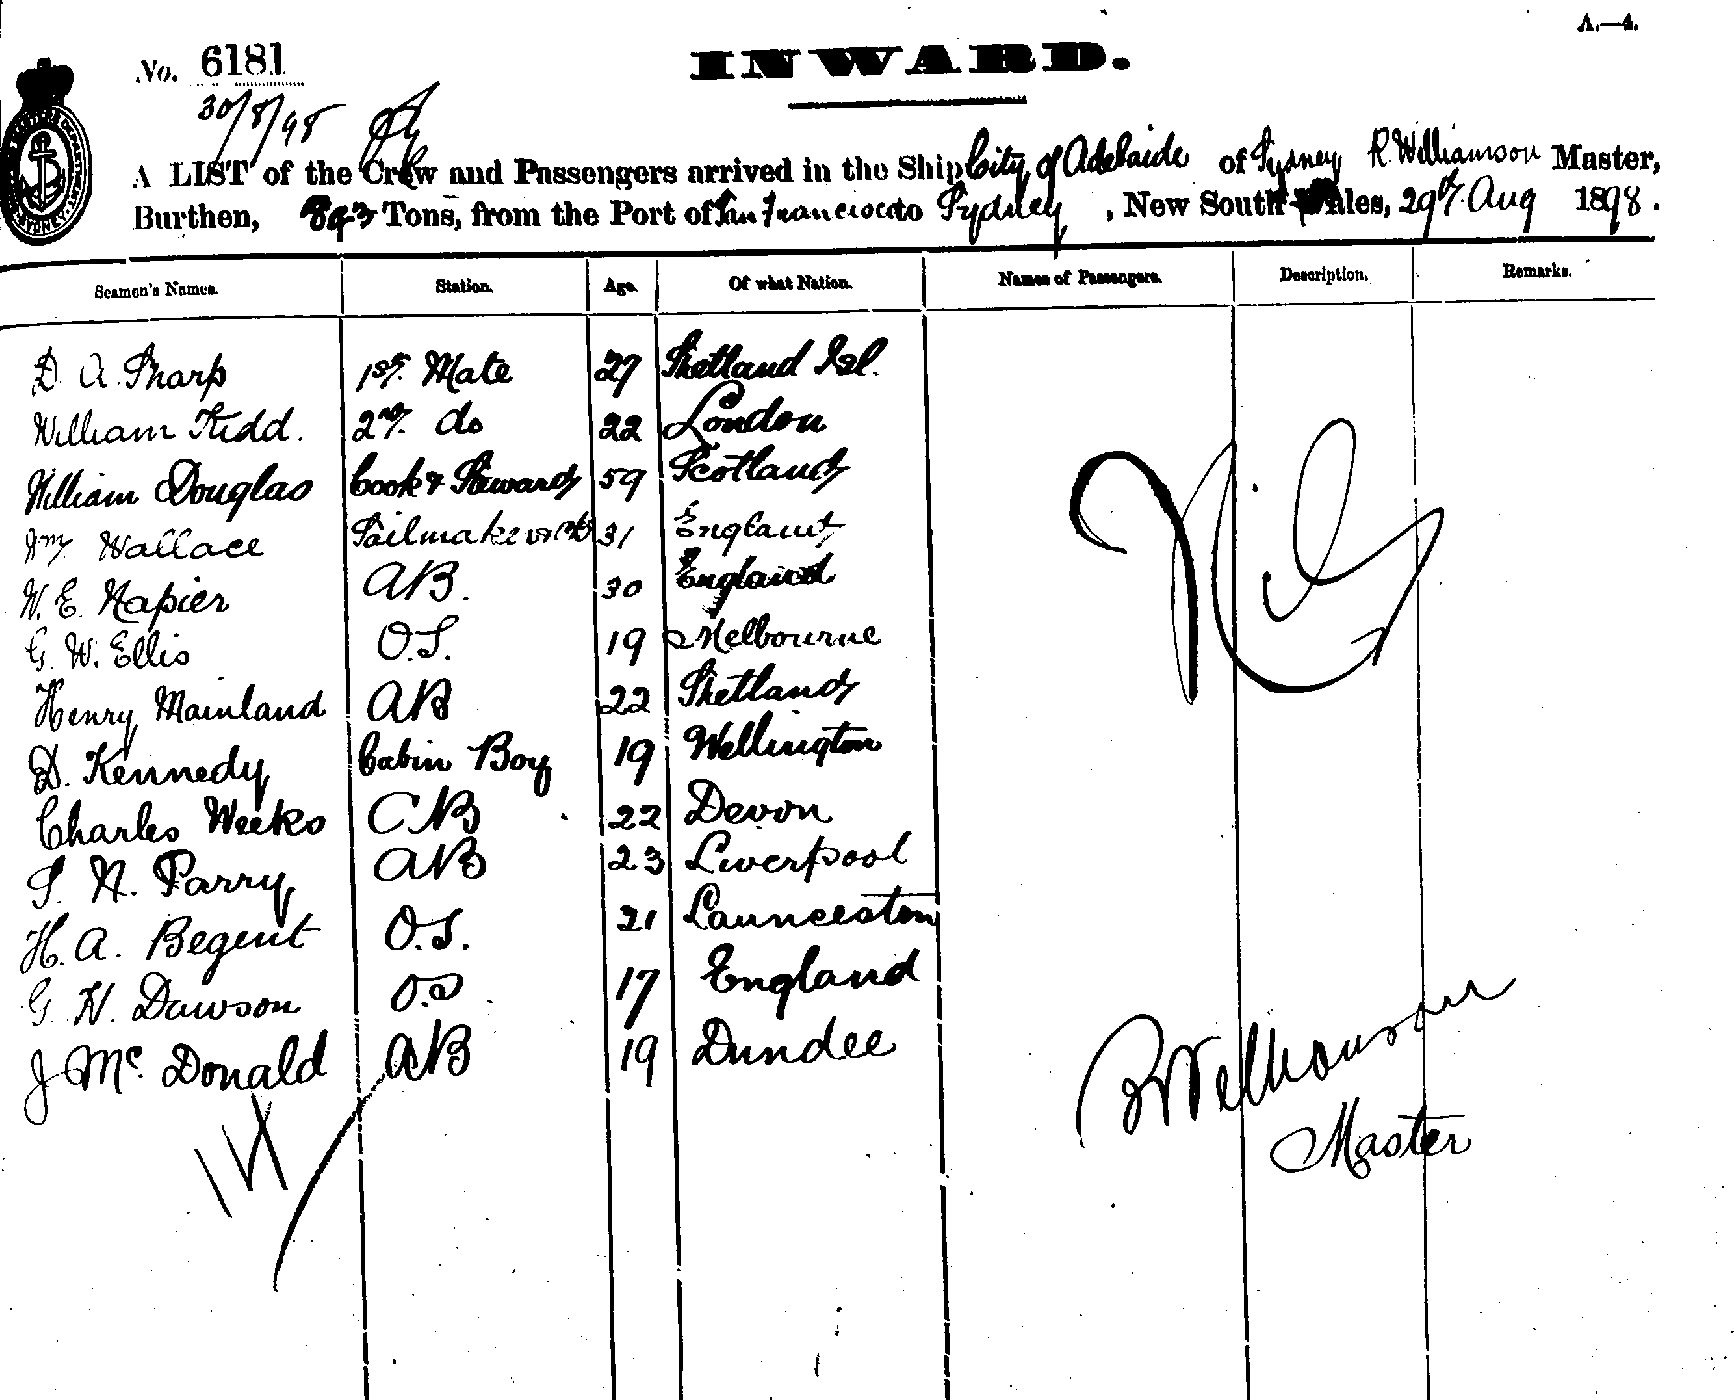 A.—4.
No. 6181
INWARD.
30/8/98
A LIST of the Crew and Passengers arrived in the Ship City of Adelaide of Sydney R. Williamson Master,
Burthen, 893 Tons, from the Port of San Francisco to Sydney, New South Wales, 29th Aug 1898.
Seamen's Names. Station. Age. Of what Nation. Names of Passengers. Description. Remarks.
D. A. Sharp 1st Mate 27 Shetland Isl.
William Kidd. 2nd do 22 London
William Douglas Cook & Steward 59 Scotland
Wm Wallace Sailmaker 31 England
W. E. Napier AB. 30 England
G. W. Ellis O.S. 19 Melbourne
Henry Mainland AB 22 Shetland
D. Kennedy Cabin Boy 19 Wellington
Charles Weeks AB 22 Devon
S. N. Parry AB 23 Liverpool
H. A. Begent O.S. 21 Launceston
G. H. Dawson O.S 17 England
J Mc Donald AB 19 Dundee
Nil
14
R Williamson
Master